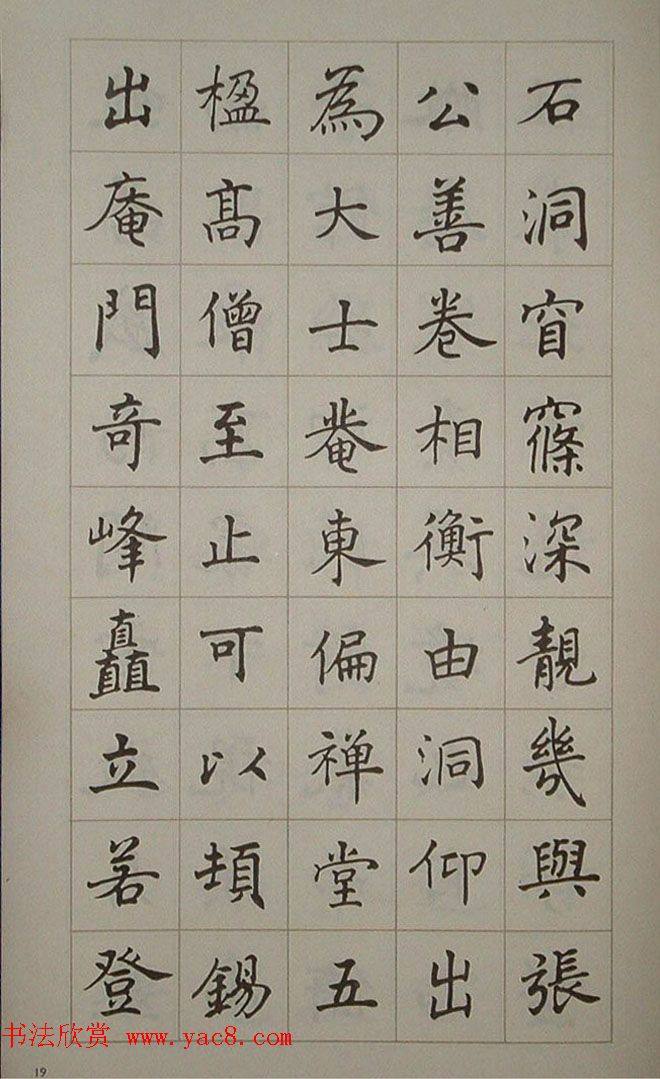 石洞窅窱深靚幾與張
公善卷相衡由洞仰出
為大士菴東偏禅堂五
楹髙僧至止可以頓錫
出庵門奇峰矗立若登
书法欣赏 www.yac8.com
19